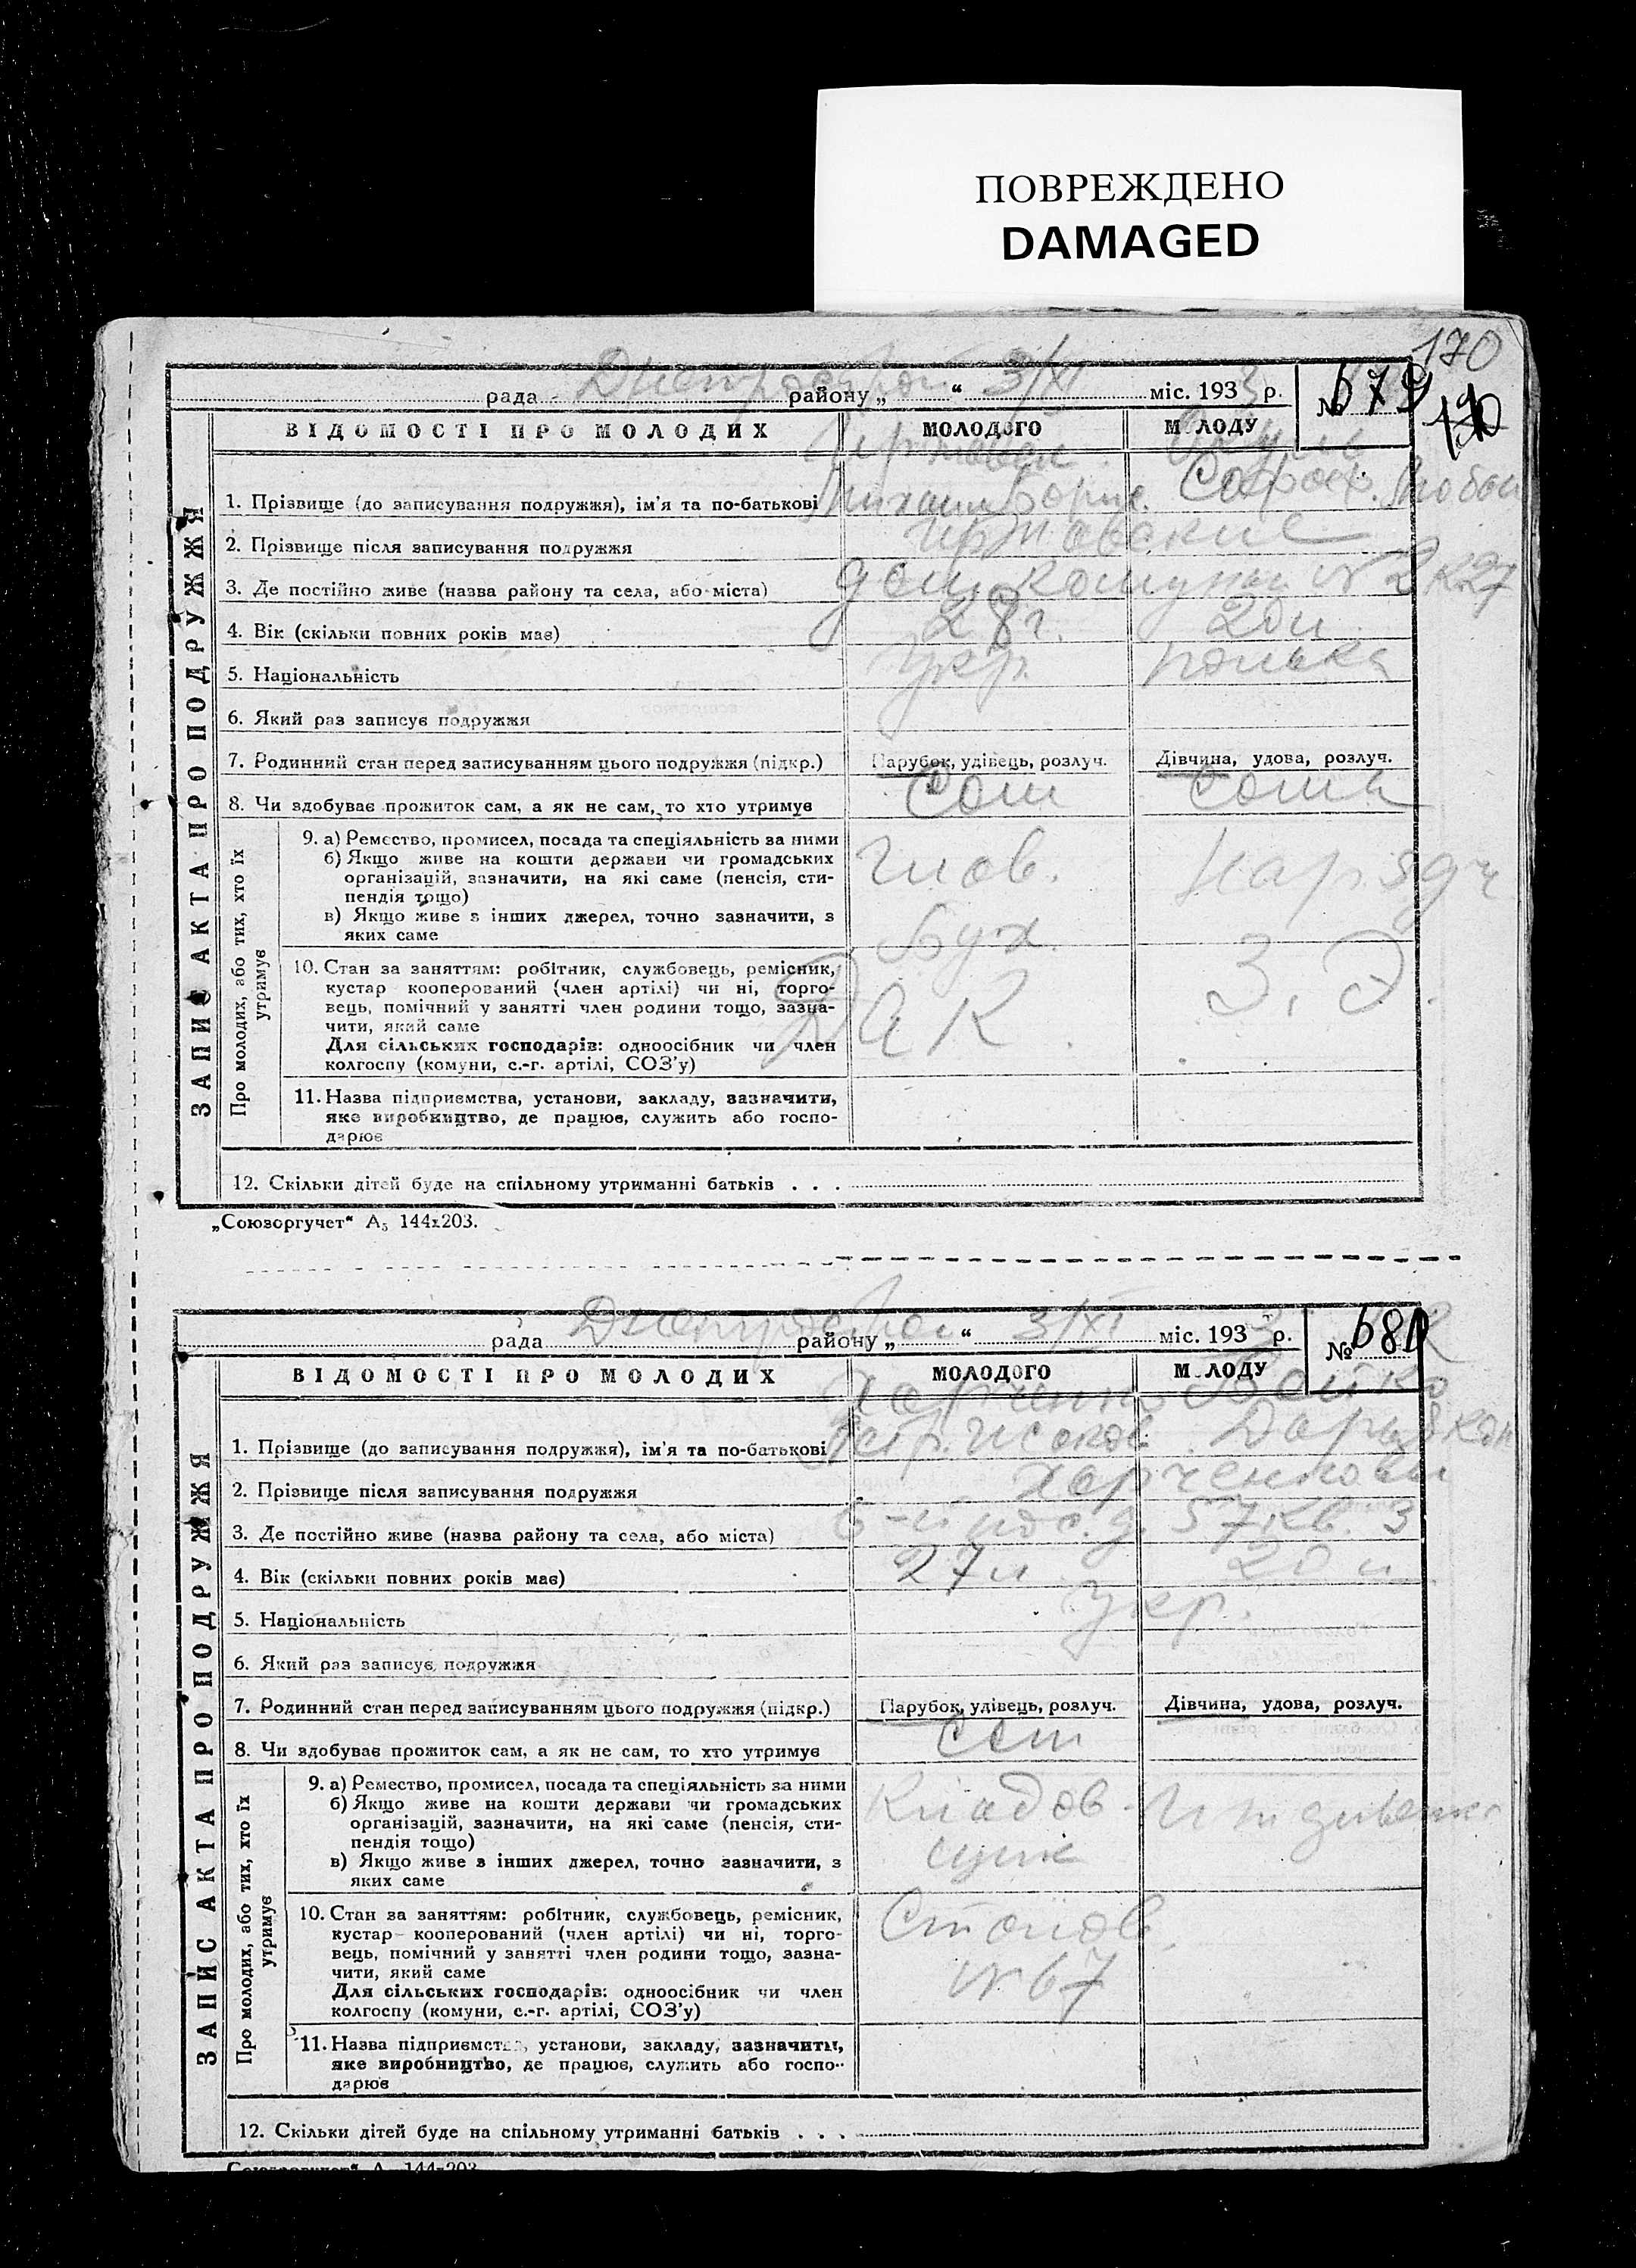 ПОВРЕЖДЕНО
DAMAGED
170
рада Днепрострой району „ “ 3/XI міс. 1933 р. № 679
ВІДОМОСТІ ПРО МОЛОДИХ МОЛОДОГО М ЛОДУ
ЗАПИС АКТА ПРО ПОДРУЖЖЯ
1. Прізвище (до записування подружжя), ім'я та по-батькові Михаил Борис.
2. Прізвище після записування подружжя
3. Де постійно живе (назва району та села, або міста) дом. Комуны № 2 к 27
4. Вік (скільки повних років має) 28 г. 20 л
5. Національність укр. полька
6. Який раз записує подружжя
7. Родинний стан перед записуванням цього подружжя (підкр.) Парубок, удівець, розлуч. Дівчина, удова, розлуч.
8. Чи здобуває прожиток сам, а як не сам, то хто утримує Сам сама
Про молодих, або тих, хто їх утримує
9. а) Ремество, промисел, посада та спеціяльність за ними
б) Якщо живе на кошти держави чи громадських
організацій, зазначити, на які саме (пенсія, сти-
пендія тощо)
в) Якщо живе з інших джерел, точно зазначити, з
яких саме
Глов. Нарядч
Бух.
10. Стан за заняттям: робітник, службовець, ремісник,
кустар кооперований (член артілі) чи ні, торго-
вець, помічний у занятті член родини тощо, зазна-
чити, який саме
Для сільських господарів: одноосібник чи член
колгоспу (комуни, с.-г. артілі, СОЗ'у)
ДАК З. Э.
11. Назва підприємства, установи, закладу, зазначити,
яке виробництво, де працює, служить або госпо-
дарює
12. Скільки дітей буде на спільному утриманні батьків . . .
„Союзоргучет“ А5 144х203.
рада Днепрострой району „ “ 3/XI міс. 1933 р. № 680
ВІДОМОСТІ ПРО МОЛОДИХ МОЛОДОГО М ЛОДУ
ЗАПИС АКТА ПРО ПОДРУЖЖЯ
Харченко Бойко
1. Прізвище (до записування подружжя), ім'я та по-батькові
2. Прізвище після записування подружжя Харченковы
3. Де постійно живе (назва району та села, або міста) 6-й пос. д. 57 кв. 3
4. Вік (скільки повних років має) 27 л 20 л.
5. Національність укр.
6. Який раз записує подружжя
7. Родинний стан перед записуванням цього подружжя (підкр.) Парубок, удівець, розлуч. Дівчина, удова, розлуч.
8. Чи здобуває прожиток сам, а як не сам, то хто утримує Сам
Про молодих, або тих, хто їх утримує
9. а) Ремество, промисел, посада та спеціяльність за ними
б) Якщо живе на кошти держави чи громадських
організацій, зазначити, на які саме (пенсія, сти-
пендія тощо)
в) Якщо живе з інших джерел, точно зазначити, з
яких саме
Кладов- Иждивенка
щик
10. Стан за заняттям: робітник, службовець, ремісник,
кустар кооперований (член артілі) чи ні, торго-
вець, помічний у занятті член родини тощо, зазна-
чити, який саме
Для сільських господарів: одноосібник чи член
колгоспу (комуни, с.-г. артілі, СОЗ'у)
Столов.
№ 67
11. Назва підприємства, установи, закладу, зазначити,
яке виробництво, де працює, служить або госпо-
дарює
12. Скільки дітей буде на спільному утриманні батьків . . .
„Союзоргучет“ А5 144х203